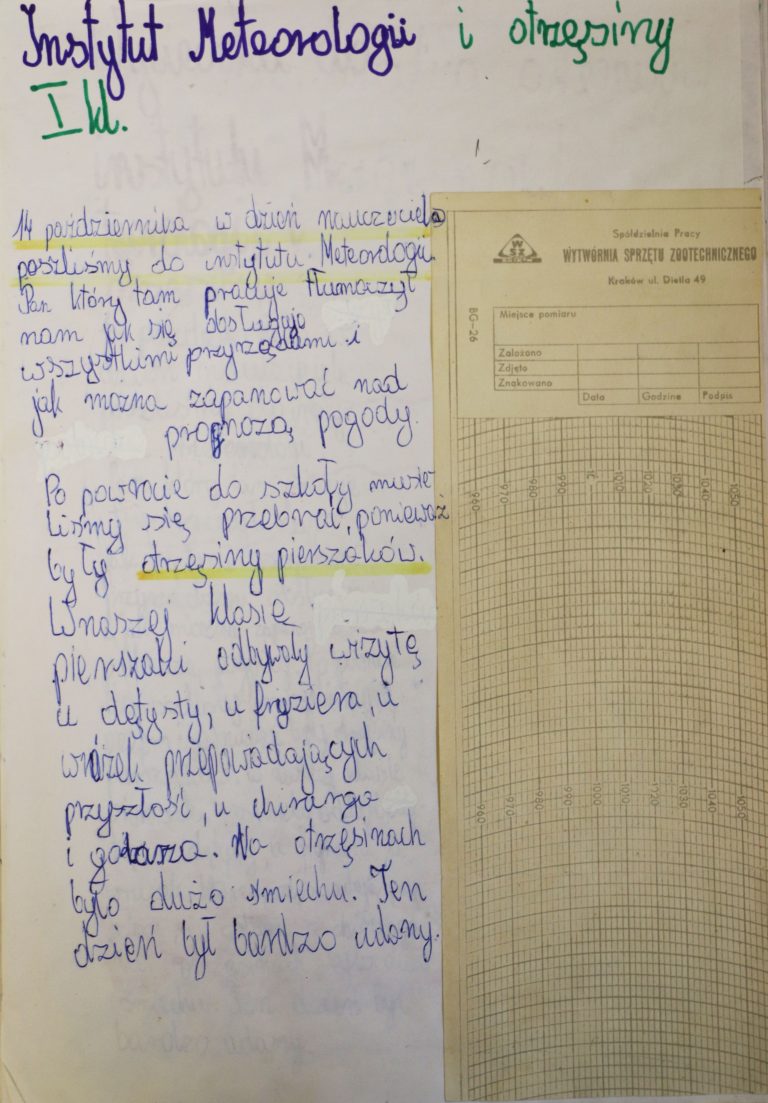 Instytut Meteorologii i otrzęsiny
I kl.
14 października w dzień nauczyciela
poszliśmy do instytutu Meteorologii.
Pan który tam pracuje tłumaczył
nam jak się obsługuje
wszystkimi przyrządami i
jak można zapanować nad
prognozą pogody.
Po powrocie do szkoły musie
liśmy się przebrać, ponieważ
były otrzęsiny pierszaków.
Wnaszej klasię
pierszaki odbywały wizytę
u dętysty, u fryziera, u
wróżek przepowiadających
przyszłość, u chirurga
i golarza. Na otrzęsinach
było dużo śmiechu. Ten
dzień był bardzo udany.
WSZ
Spółdzielnia Pracy
WYTWÓRNIA SPRZĘTU ZOOTECHNICZNEGO
Kraków ul. Dietla 49
BG-26
Miejsce pomiaru
Założono
Zdjęto
Znakowano
Data Godzina Podpis
960 970 980 990 1010 1020 1030 1040 1050
960 970 980 990 1000 1010 1020 1030 1040 1050